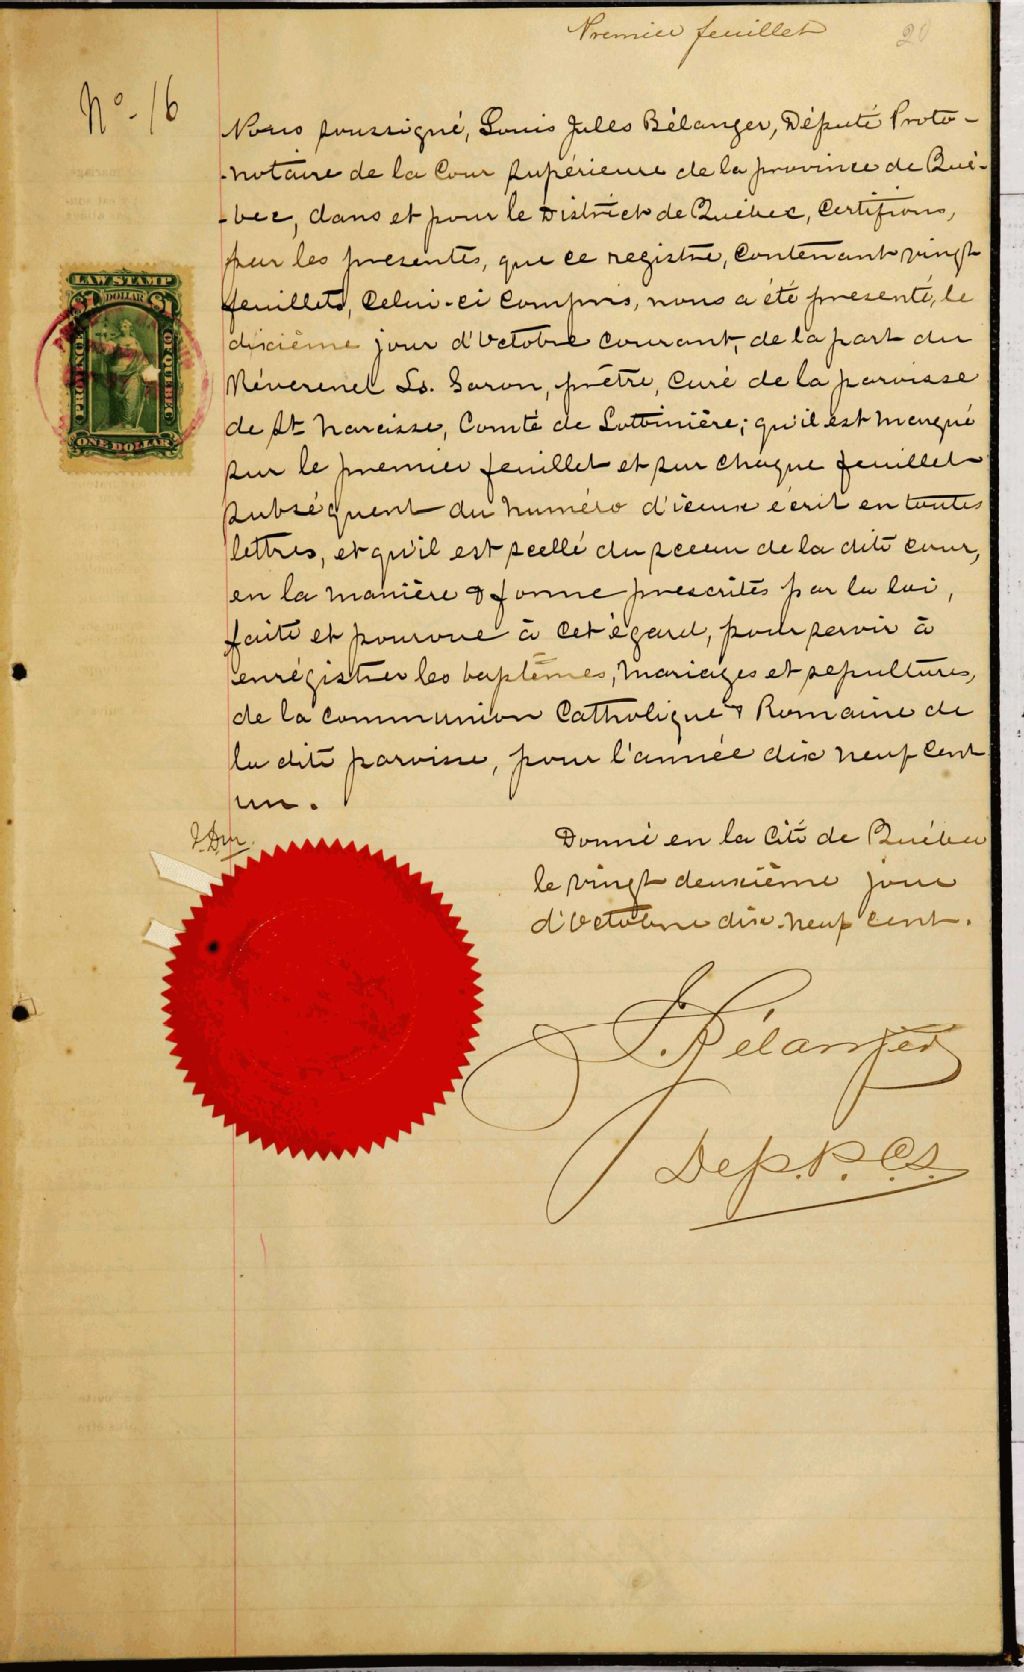 Premier feuillet
20
No - 16
Nous soussigné, Louis Jules Bélanger, Député Proto-
-notaire de la Cour Supérieure de la province de Qué-
-bec, dans et pour le District de Québec, Certifions,
par les présentes, que ce registre, contenant vingt
feuillets, celui-ci compris, nous a été présenté, le
dixième jour d'Octobre courant, de la part du
Révérend Ls. Garon, prêtre, Curé de la paroisse
de St Narcisse, Comté de Lotbinière; qu'il est marqué
sur le premier feuillet et sur chaque feuillet
subséquent du numéro d'iceux écrit en toutes
lettres, et qu'il est scellé du sceau de la dite cour,
en la manière & forme prescrites par la loi,
faite et pourvue à cet égard, pour servir à
enrégistrer les baptêmes, mariages et sépultures,
de la communion Catholique & Romaine de
la dite paroisse, pour l'année dix neuf cent
un.
LAW STAMP
$1 DOLLAR $1
PROVINCE OF QUEBEC
ONE DOLLAR
Donné en la Cité de Québec
le vingt deuxième jour
d'Octobre dix-neuf cent.
J. Bélanger
Dep. P. C. S.